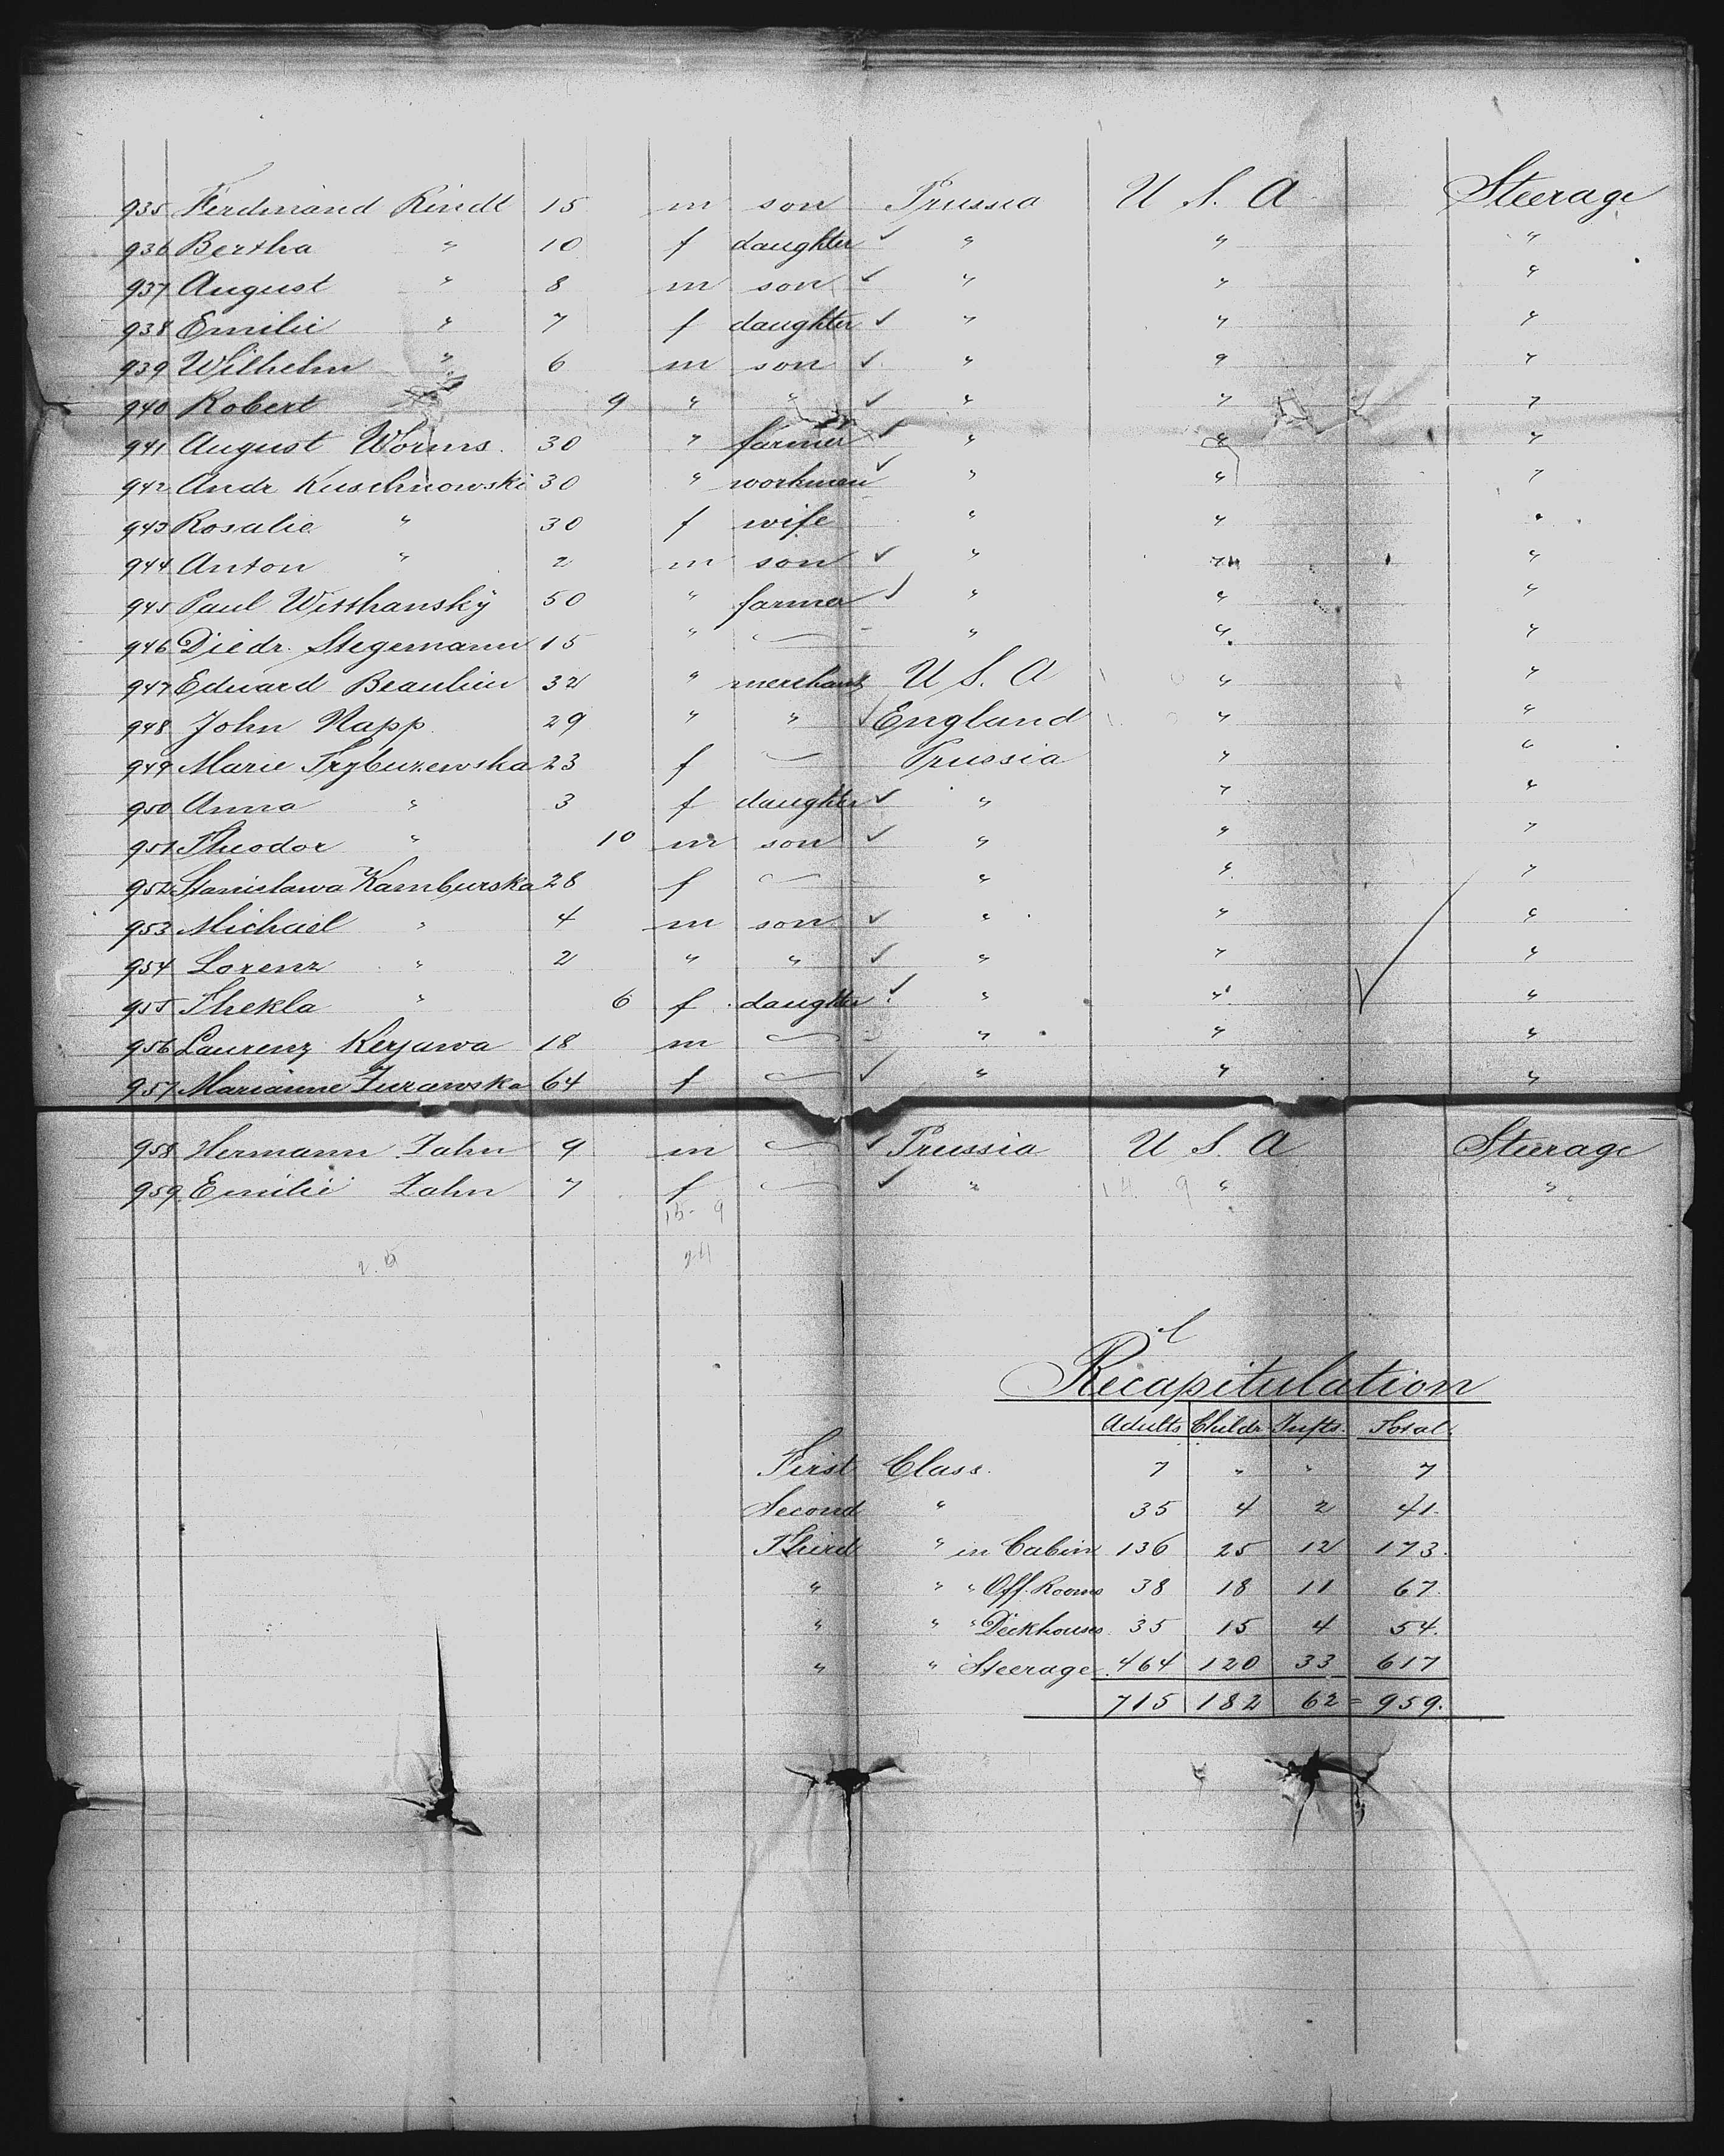 935 Ferdinand Rindt 15 m son Prussia U. S. A Steerage
936 Bertha " 10 f daughter ✓ " " "
937 August " 8 m son ✓ " " "
938 Emilie " 7 f daughter ✓ " " "
939 Wilhelm " 6 m son ✓ " " "
940 Robert " 9 " " ✓ " " "
941 August Worms 30 " farmer ✓ " " "
942 Andr Kuschnowski 30 " workman ✓ " " "
943 Rosalie " 30 f wife " " "
944 Anton " 2 m son ✓ " " "
945 Paul Witthansky 50 " farmer ✓ " " "
946 Diedr. Stegemann 15 " — " " "
947 Eduard Beaulieu 32 " merchant U. S. A " "
948 John Napp 29 " " ✓ England " "
949 Marie Trybuzewska 23 f — Prussia " "
950 Anna " 3 f daughter ✓ " " "
951 Theodor " 10 m son ✓ " " "
952 Stanislawa Kamburska 28 f — " " "
953 Michael " 4 m son ✓ " " "
954 Lorenz " 2 " " ✓ " " "
955 Thekla " 6 f daughter ✓ " " "
956 Laurenz Kerjawa 18 m — " " "
957 Marianne Zurawska 64 f — ✓ " " "
958 Hermann Zahn 9 m — ✓ Prussia U. S. A Steerage
959 Emilie Zahn 7 f — ✓ " " "
Recapitulation
Adults Childr Infts. Total
First Class. 7 " " 7
Second " 35 4 2 41.
Third " in Cabin 136 25 12 173.
" " " Off. Rooms 38 18 11 67.
" " " Deckhouses 35 15 4 54.
" " Steerage 464 120 33 617
715 182 62 = 959.